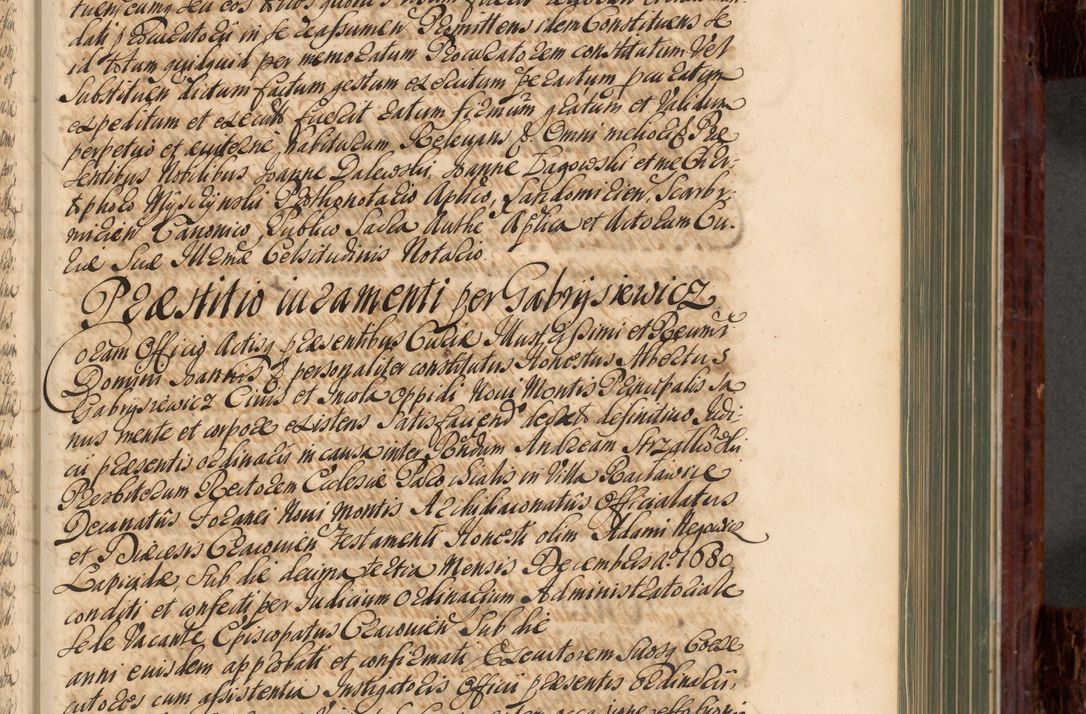 dati Procuratorii in se reassumen Permittens idem Constituens se
id totum quidquid per memoratum Procuratorem constitutum vel
substituen dictum factum gestum executum peractum procuratum
expeditum et execut fuerit ratum firmum gratum et validum
perpetuo et eviterne habiturum Relevans & Omni meliori & Prae
sentibus Nobilibus Joanne Dalewski, Joanne Łagowski et me Chri-
stophoro Myszynski Prothonotario Aplico, Sandomirien, Scarbi-
mirien Canonico, Publico Sacra Authe Aplica et Actorum Cu-
riae Suae Illmae Celsitudinis Notario.
Praestitio iuramenti per Gabrysiewicz
Coram Officio Actisq praesentibus Curiae Illustrissimi et Reverendissimi
Domini Joannis & personaliter constitutus Honestus Albertus
Gabrysiewicz Civis et Incola oppidi Novi Montis Principalis sa
nus mente et corpore existens Satisfaciend decreto definitivo Judi-
cii praesentis ordinarii in causa inter Rndum Andream Strzałkowski
Presbiterum Rectorem Ecclesiae Parochialis in Villa Racławice
Decanatus Foranei Novi Montis Archidiaconatus Officialatus
et Diaecesis Cracovien Testamenti Honesti olim Adami Negowic
Lapicidae sub die decima tertia Mensis Decembris Ao 1680
conditi et confecti per Judicium Ordinarium Administratoriale
sede Vacante Episcopatus Cracovien sub die
anni eiusdem approbati et confirmati Executorem suosq Coexe
cutores cum assistentia Instigatoris Officii praesentis Ordinarii,